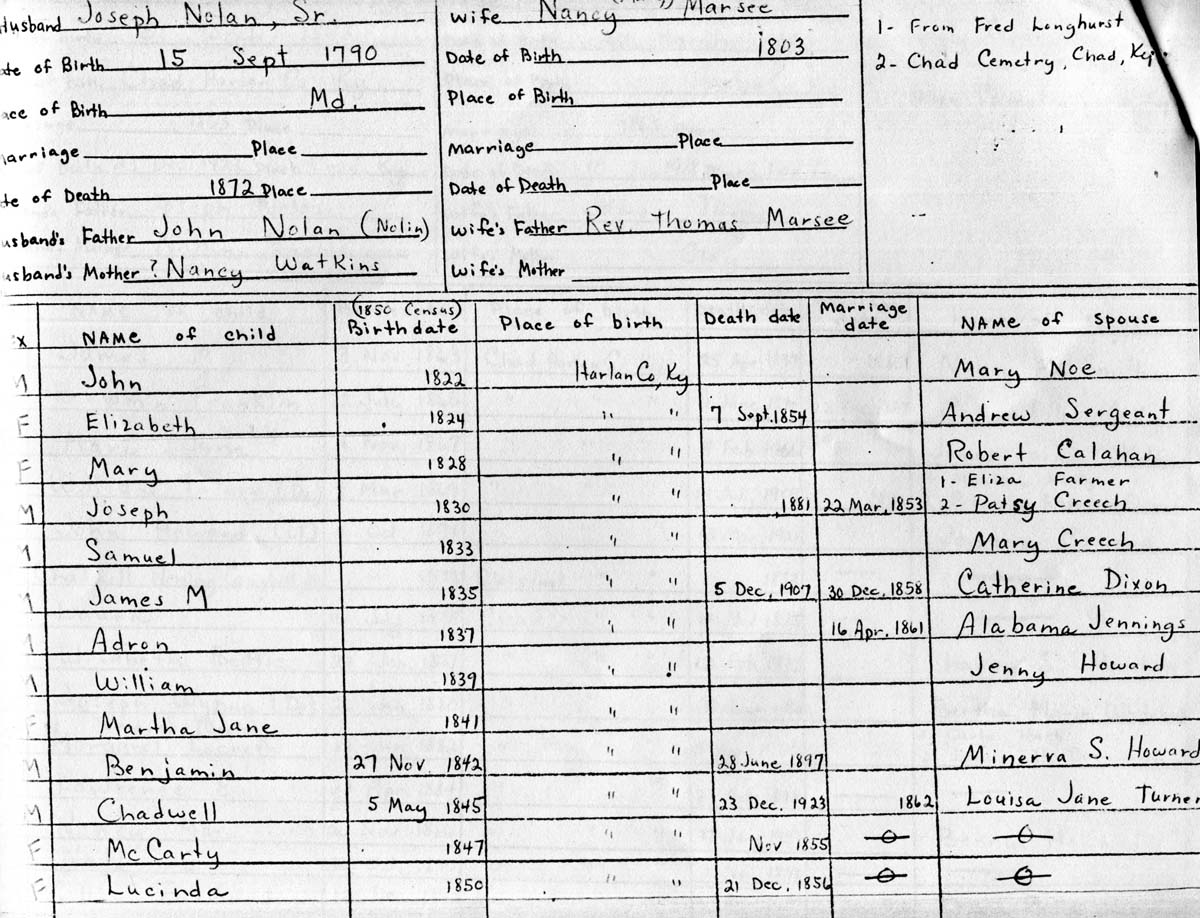 Husband Joseph Nolan, Sr.
ate of Birth 15 Sept 1790
ace of Birth Md.
arriage Place
te of Death 1872 Place
usband's Father John Nolan (Nolin)
usband's Mother ? Nancy Watkins
Wife Nancy Marsee
Date of Birth 1803
Place of Birth
Marriage Place
Date of Death Place
Wife's Father Rev. Thomas Marsee
Wife's Mother
1- From Fred Longhurst
2- Chad Cemetry, Chad, Ky.
x NAME of child (1850 Census) Birthdate Place of birth Death date Marriage date NAME of Spouse
M John 1822 Harlan Co, Ky Mary Noe
F Elizabeth 1824 " " 7 Sept. 1854 Andrew Sergeant
F Mary 1828 " " Robert Calahan
1- Eliza Farmer
M Joseph 1830 " " 1881 22 Mar, 1853 2- Patsy Creech
M Samuel 1833 " " Mary Creech
M James M 1835 " " 5 Dec, 1907 30 Dec, 1858 Catherine Dixon
M Adron 1837 " " 16 Apr. 1861 Alabama Jennings
M William 1839 " " Jenny Howard
F Martha Jane 1841 " "
M Benjamin 27 Nov. 1842 " " 28 June 1897 Minerva S. Howard
M Chadwell 5 May 1845 " " 23 Dec. 1923 1862 Louisa Jane Turner
F McCarty 1847 " " Nov 1855
F Lucinda 1850 " " 21 Dec, 1856